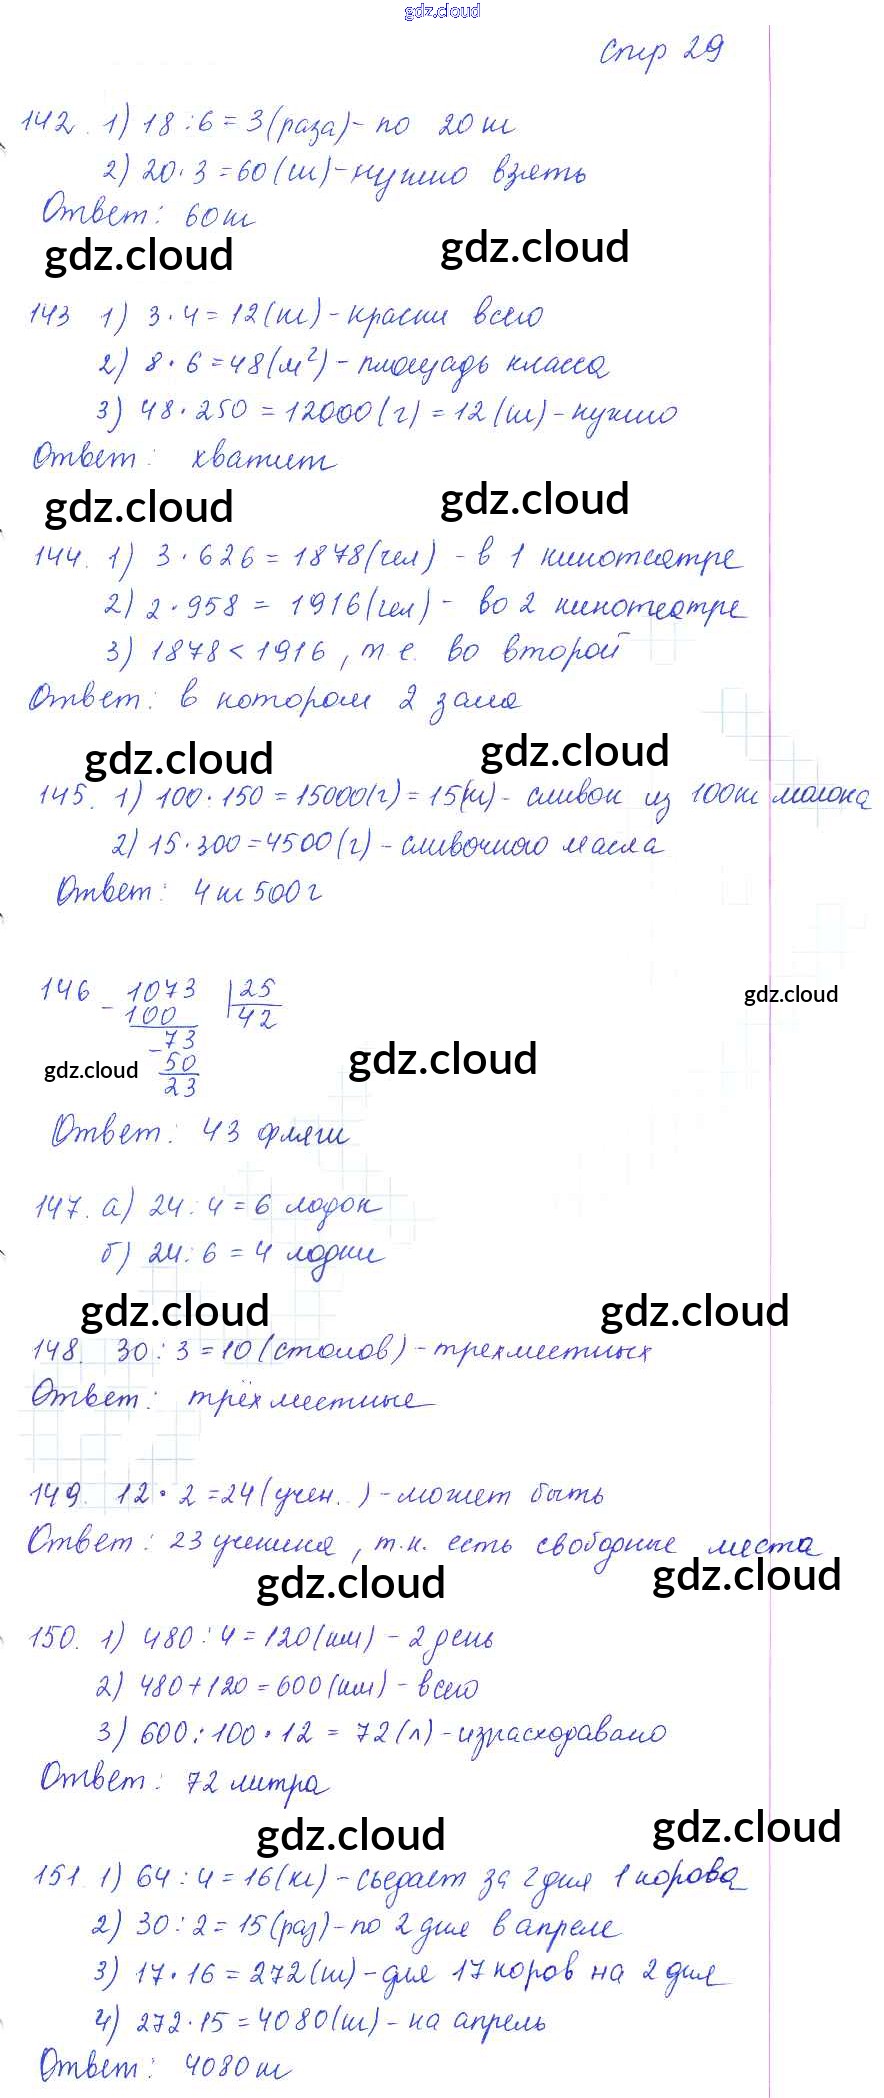 gdz.cloud
стр 29
142. 1) 18 : 6 = 3 (раза) - по 20 кг
2) 20 · 3 = 60 (кг) - нужно взять
Ответ: 60 кг
gdz.cloud gdz.cloud
143 1) 3 · 4 = 12 (кг) - краски всего
2) 8 · 6 = 48 (м²) - площадь класса
3) 48 · 250 = 12000 (г) = 12 (кг) - нужно
Ответ: хватит
gdz.cloud gdz.cloud
144. 1) 3 · 626 = 1878 (чел) - в 1 кинотеатре
2) 2 · 958 = 1916 (чел) - во 2 кинотеатре
3) 1878 < 1916, т.е. во второй
Ответ: в котором 2 зала
gdz.cloud gdz.cloud
145. 1) 100 · 150 = 15000 (г) = 15 (кг) - сливок из 100 кг молока
2) 15 · 300 = 4500 (г) - сливочного масла
Ответ: 4 кг 500 г
146 - 1073 | 25
100 42
- 73
50
23
gdz.cloud gdz.cloud gdz.cloud
Ответ: 43 фляги
147. а) 24 : 4 = 6 лодок
б) 24 : 6 = 4 лодки
gdz.cloud gdz.cloud
148. 30 : 3 = 10 (столов) - трехместных
Ответ: трёхместные
149. 12 · 2 = 24 (учен.) - может быть
Ответ: 23 ученика, т.к. есть свободные места
gdz.cloud gdz.cloud
150. 1) 480 : 4 = 120 (км) - 2 день
2) 480 + 120 = 600 (км) - всего
3) 600 : 100 · 12 = 72 (л) - израсходавано
Ответ: 72 литра
gdz.cloud gdz.cloud
151. 1) 64 : 4 = 16 (кг) - съедает за 2 дня 1 корова
2) 30 : 2 = 15 (раз) - по 2 дня в апреле
3) 17 · 16 = 272 (кг) - для 17 коров на 2 дня
4) 272 · 15 = 4080 (кг) - на апрель
Ответ: 4080 кг